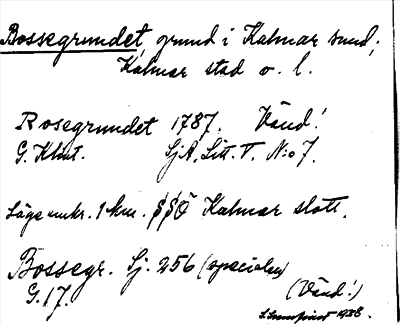 Bossegrundet, grund i Kalmar sund;
Kalmar stad o. l.
Rosegrundet 1787. Vänd!
G. Klint. SjA, Litt. V. N:o 7.
Läge omkr. 1 km. SSÖ Kalmar slott.
Bossegr. Sj. 256 (specialen)
G. 17. (Vänd!)
1938.